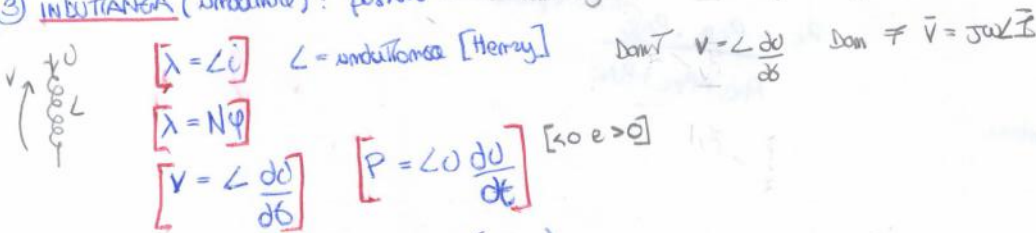 3) INDUTTANZA (induttore) :
[λ = Li] L = induttanza [Henry] Dom T v = L di/dt Dom F V̄ = JωLĪ
v i L
[λ = Nφ]
[v = L di/dt] [P = Li di/dt] [<0 e >0]